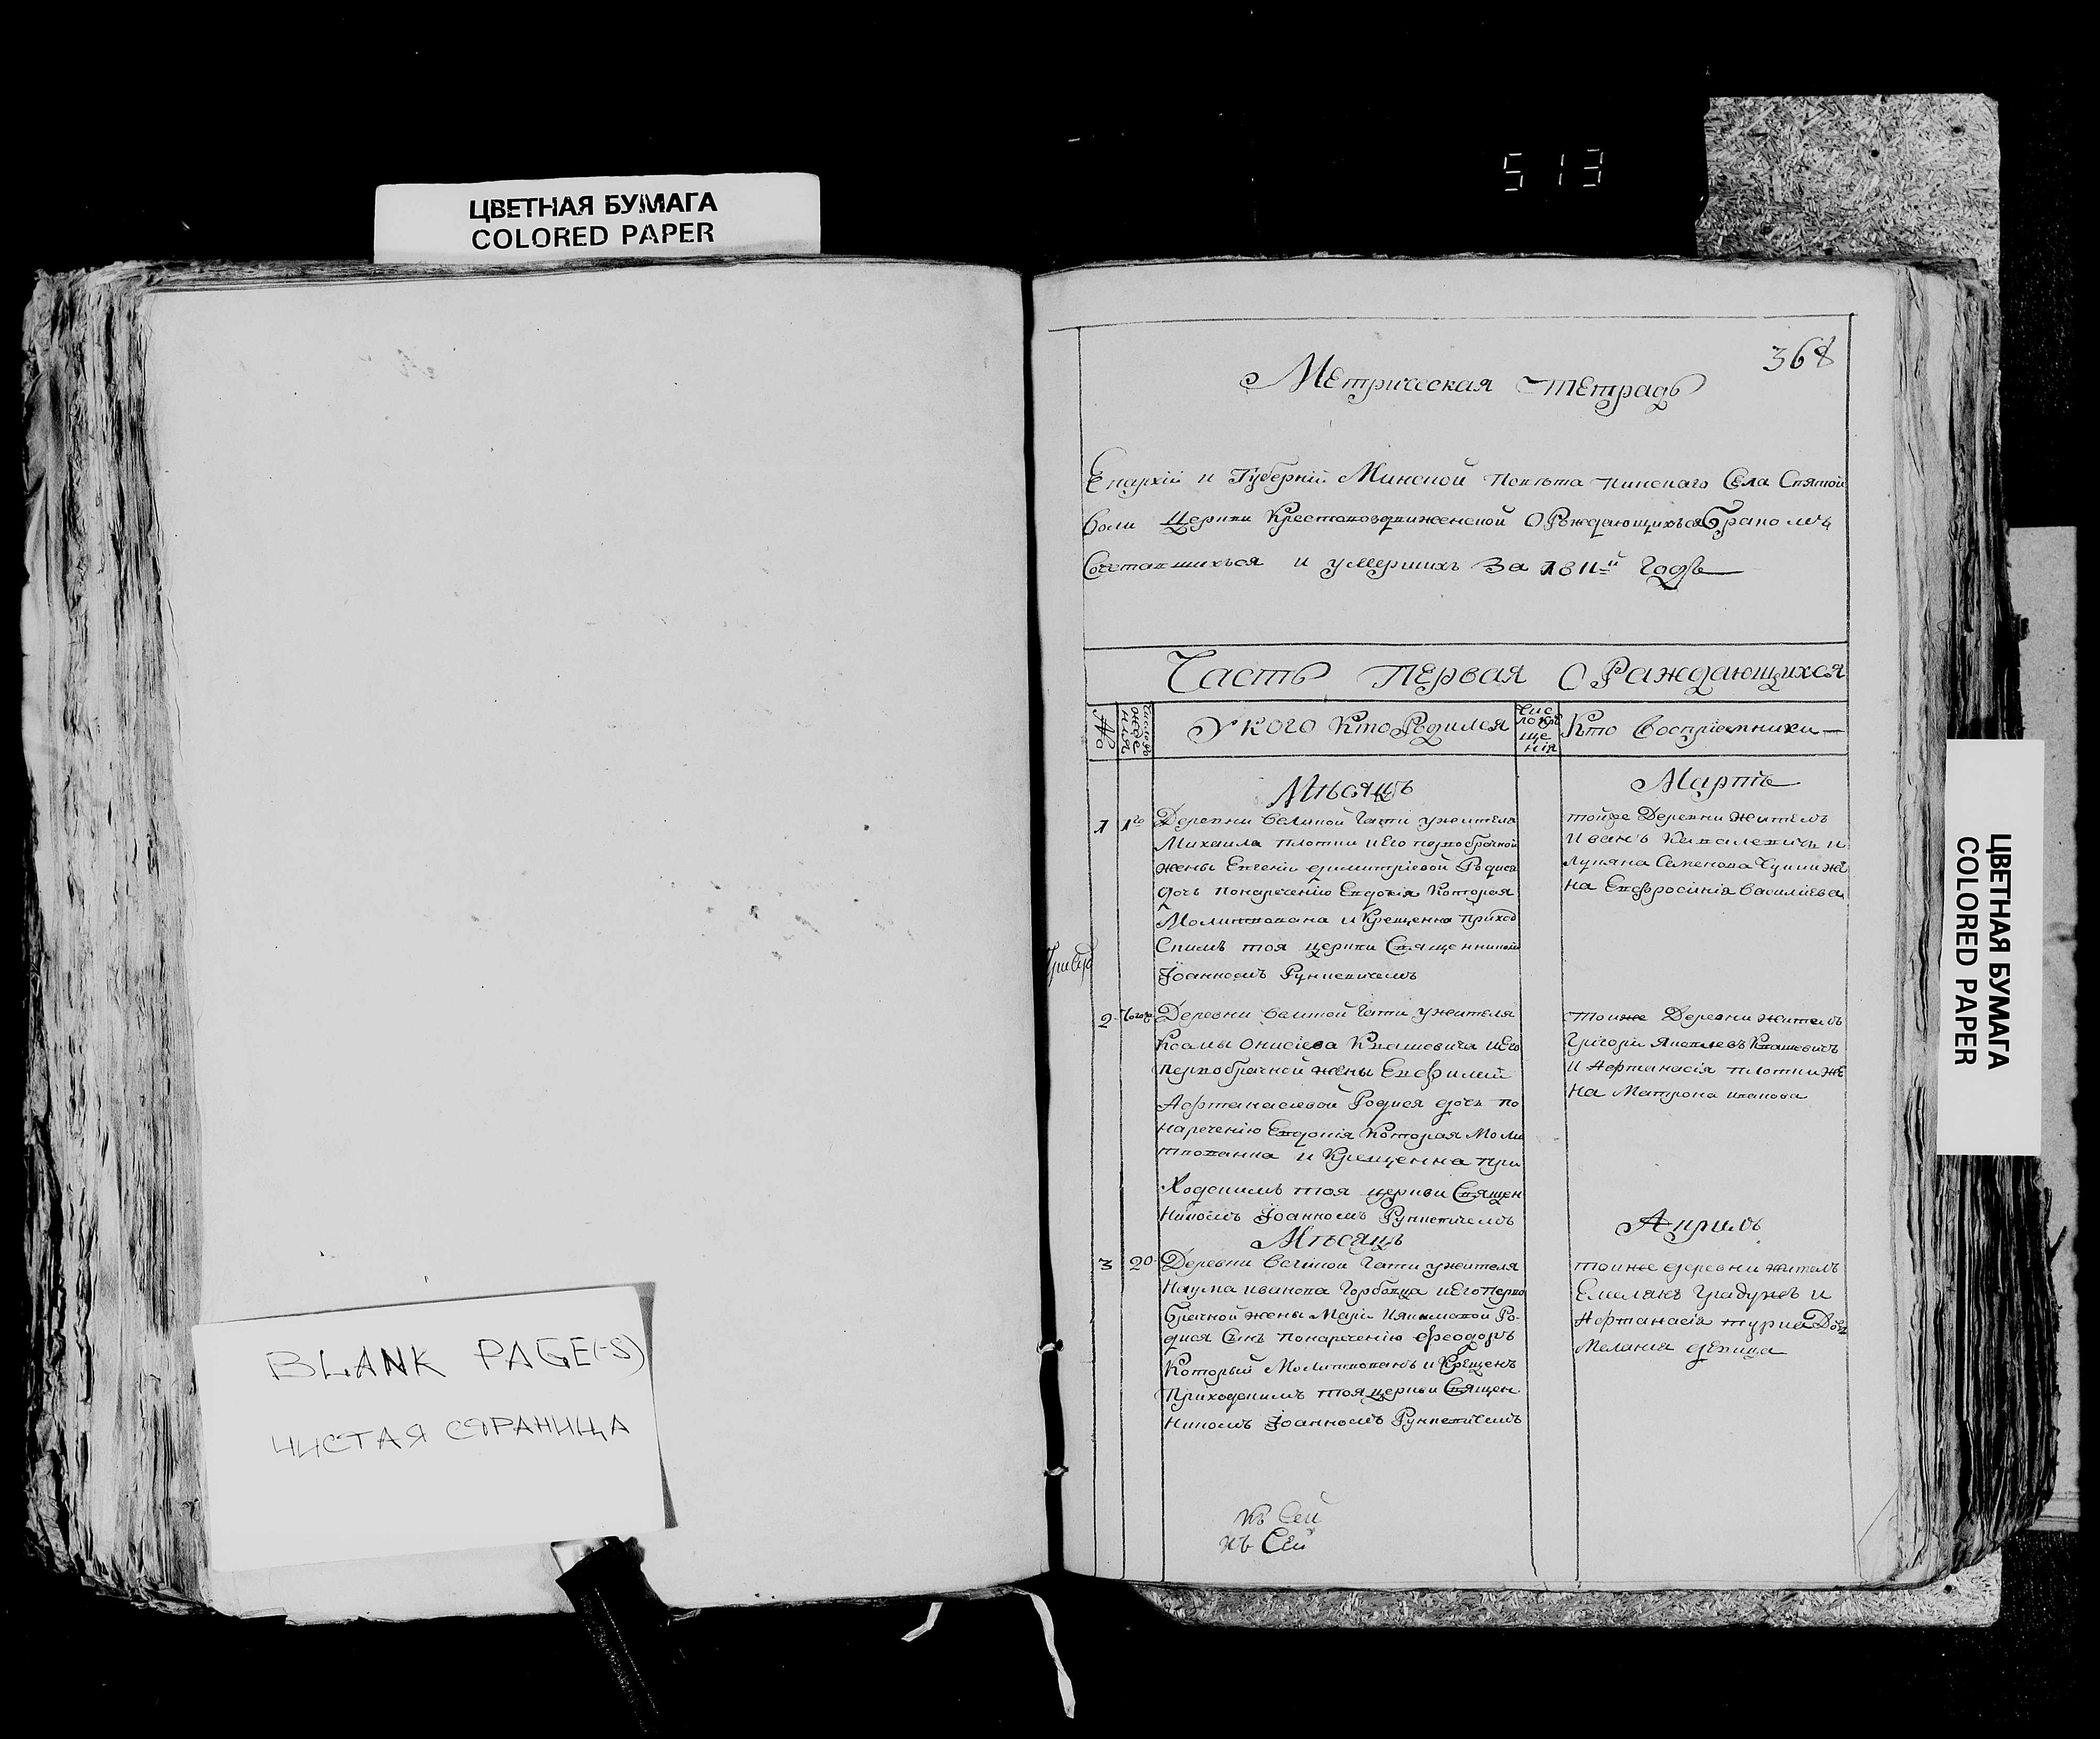 ЦВЕТНАЯ БУМАГА
COLORED PAPER
513
368
Метрическая тетрадь
Епархіи и Губерніи Минской Повѣта Пинскаго Села Святой
Воли Церкви Крестовоздвиженской О Рождающихъся Бракомъ
Сочетавшихъся и умершихъ За 1811й Годъ
Часть Первая О Раждающихся
№
Число рожденія
У кого Кто Родился
Число крещенія
Кто Восприемники
Мѣсяцъ
Мартъ
1 1го Деревни Великой Гати у жителя
Михаила Плотки и Его первобрачной
жены Евгении Димитріевой Родися
дочь по наречению Евдокія Которая
Молитвована и Крещенна приход
Скимъ тоя церкви Священником
Іоанномъ Рункевичемъ
тойже Деревни Житель
Иванъ Ковалевичъ и
Лукяна Семенова жe
на Евфросинія Василіева
2 Деревни Великой Гати у жителя
Космы Онисіева Квашевича и Его
первобрачной жены Евфимии
Афтанасіевой Родися дочь по
наречению Евдокія Которая Моли
твованна и Крещенна при
Ходскимъ тоя церкви Священ
Никомъ Іоанномъ Рункевичемъ
тоиже Деревни житель
Григори Яковлевъ Квашевичъ
и Афтанасія Плотки же
на Матрона иванова
Мѣсяцъ
Априль
3 20 Деревни Великой Гати у жителя
Наума иванова Горбовца и Его перво
брачной жены Маріи Ро-
дися Сынъ по наречению Феодоръ
Который Молитвованъ и Крещенъ
Приходскимъ тоя церкви Священ
Никомъ Іоанномъ Рункевичемъ
тоиже деревни житель
Емелянъ и
Афтанасія
Мелания девица
къ Сей
къ Сей
BLANK PAGE(-S)
ЧИСТАЯ СТРАНИЦА
ЦВЕТНАЯ БУМАГА
COLORED PAPER